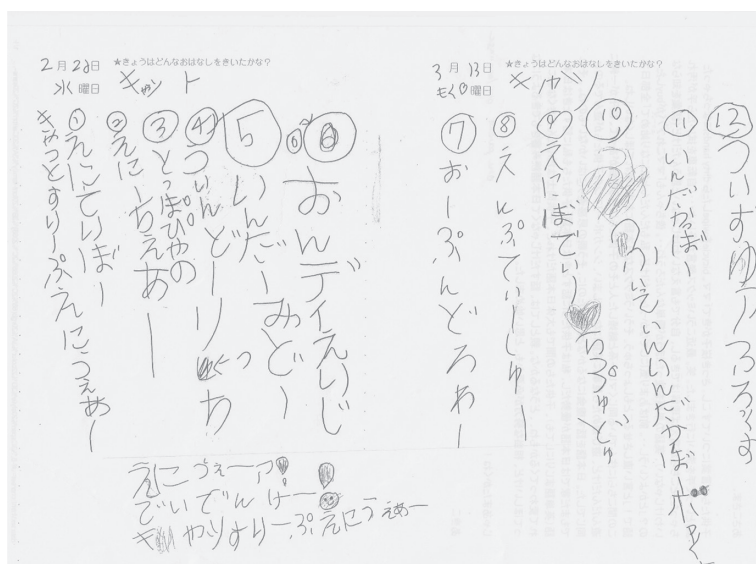 2月28日
水曜日
★きょうはどんなおはなしをきいたかな？
キャット
①えにてぃぼー
きゃっとすりーぷえにうぇあー
②えにーちぇあー
③とっぷぴやの
④ういんどーりっち
⑤いんだーみどー
⑥おんディえいじ
えにうぇーア！
でいでんけー！
キャツすりーぷえにうぇあー
3月13日
もく曜日
★きょうはどんなおはなしをきいたかな？
キャツ
⑦おーぷんどろわー
⑧えんぷてぃーしゅー
⑨えにぼでぃー
らぷゅどゅ
⑩ふぃていんいんだかぼーボ
⑪いんだかぼー
⑫ういずゆアふろっくす